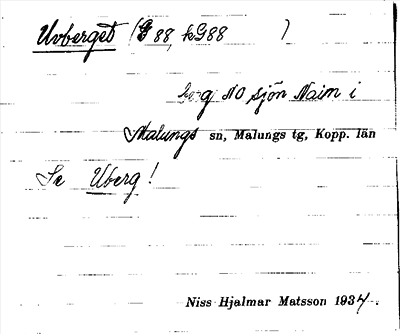 Uvberget (G 88, kG88 )
g NO sjön Naim i
Malungs sn, Malungs tg, Kopp. län
Se Uberg!
Niss Hjalmar Matsson 1934.